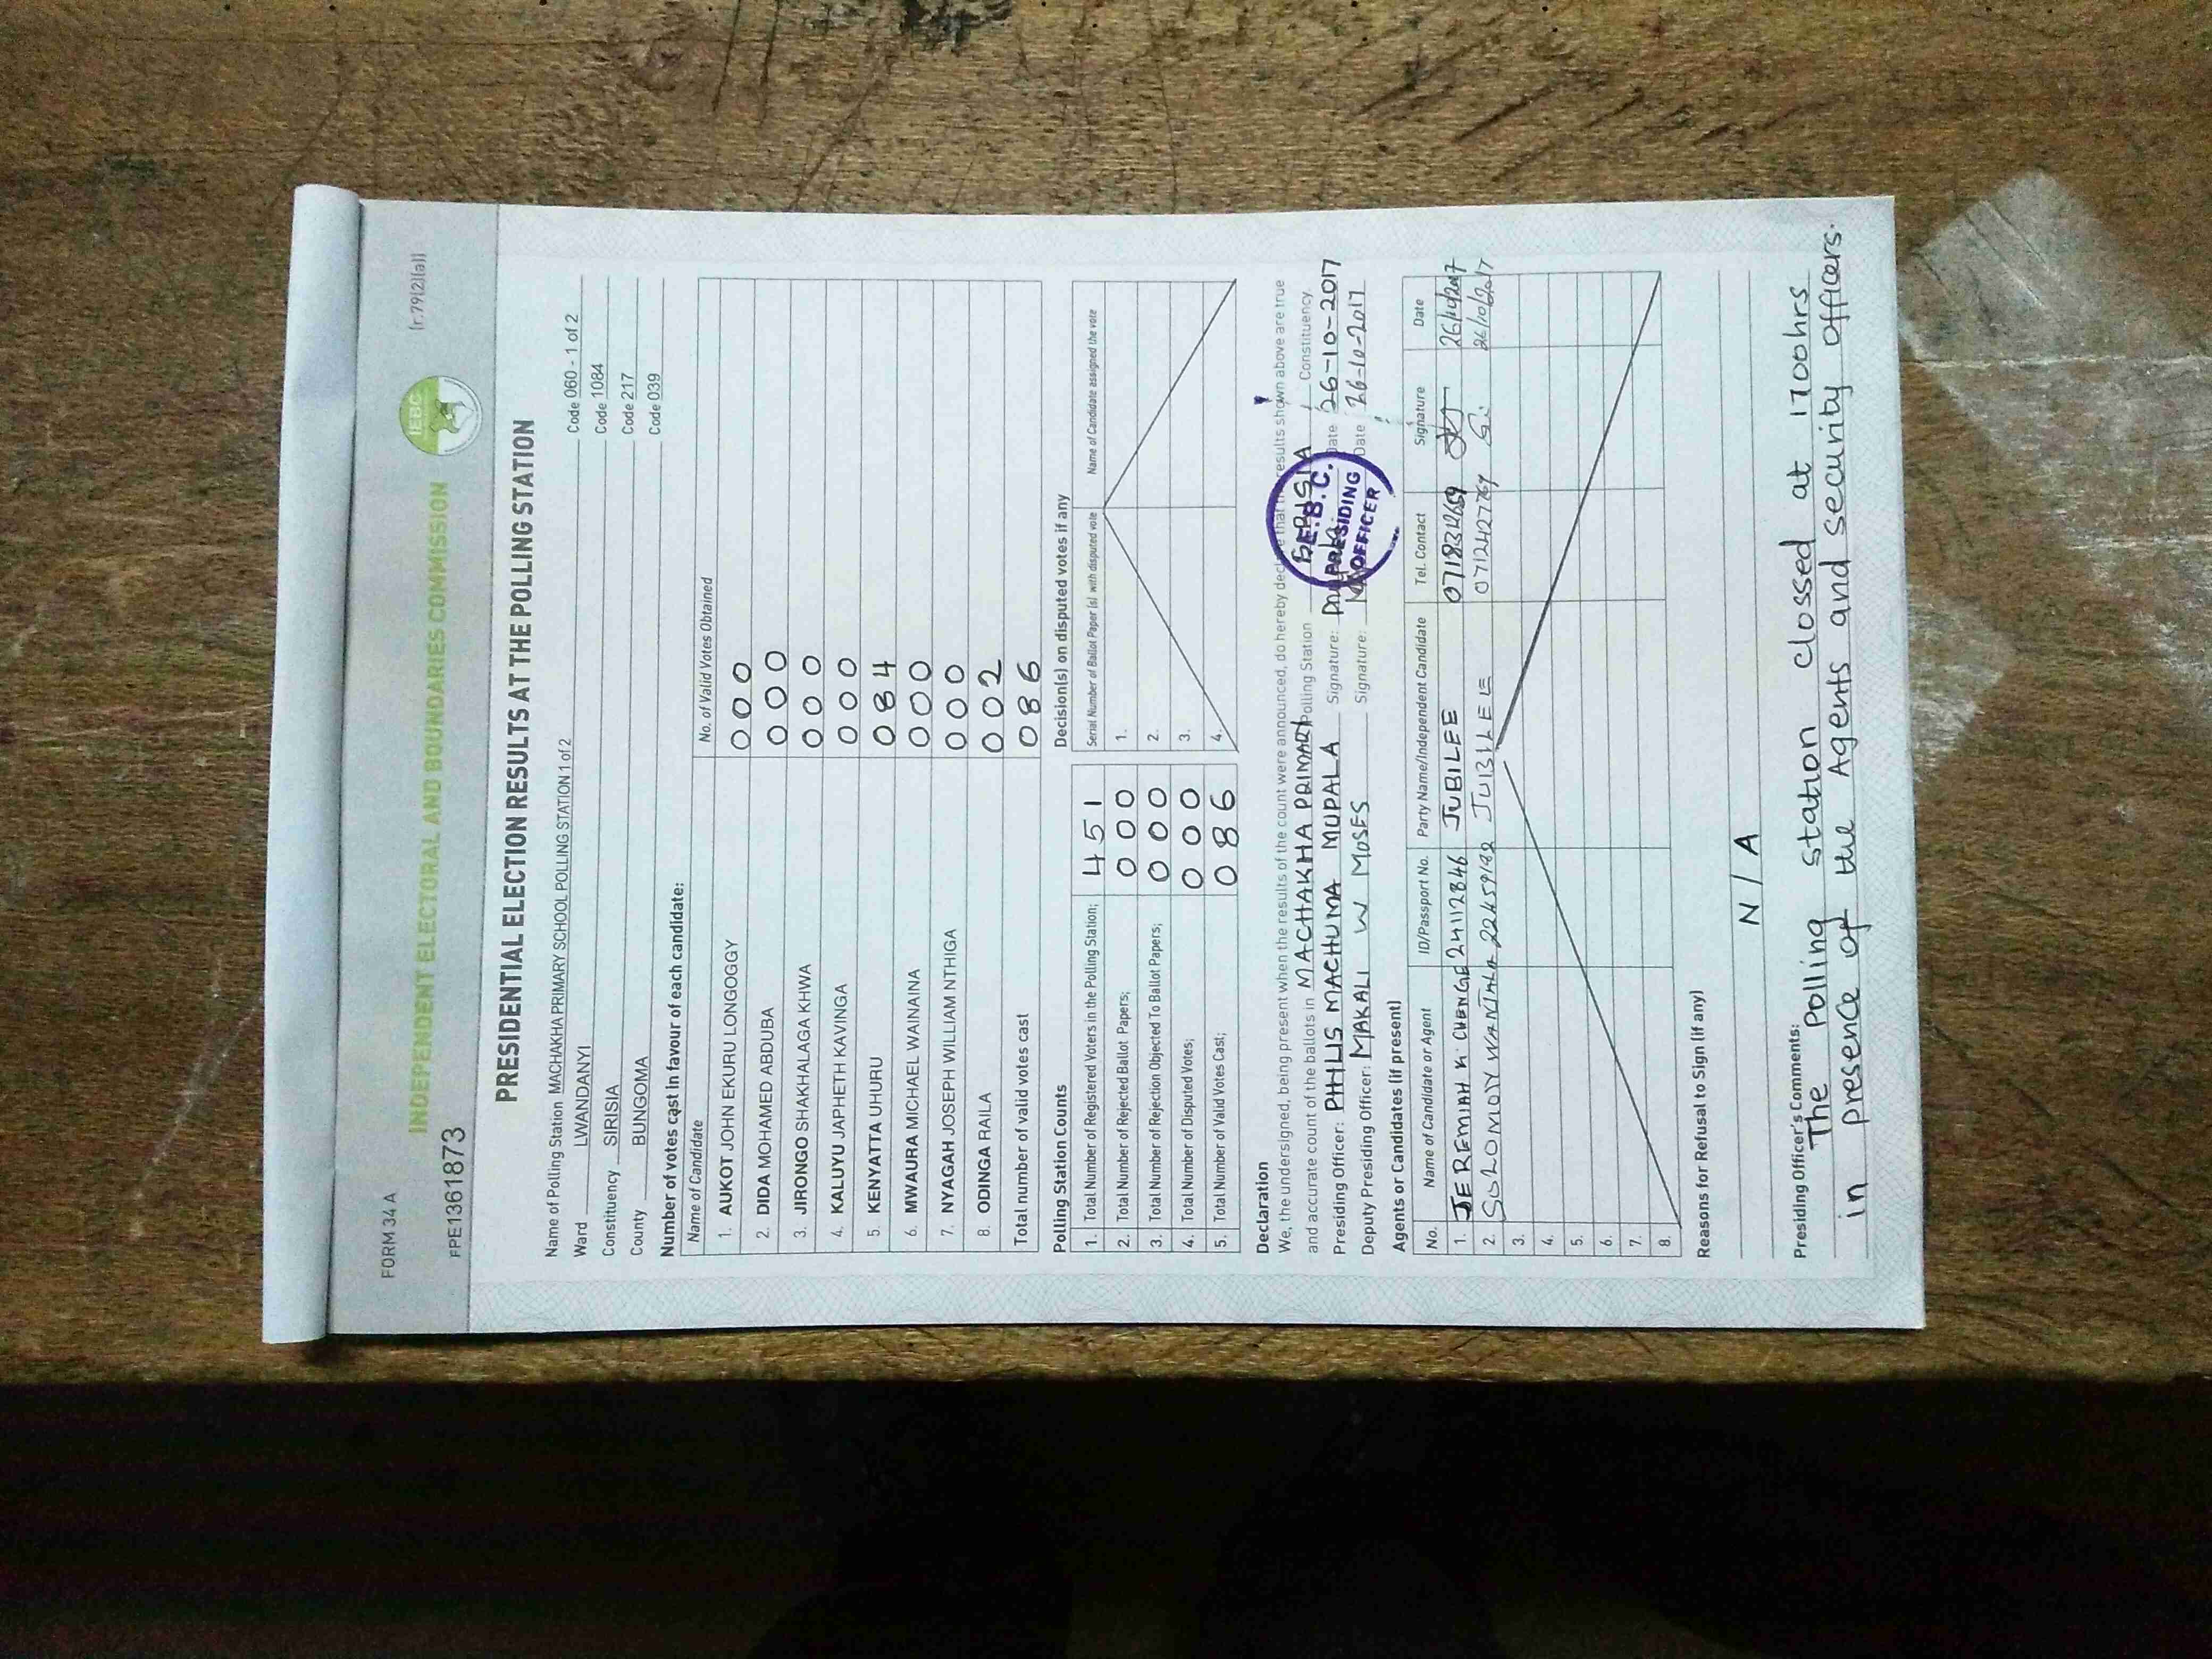 FORM 34 A
[r.79(2)(a)]
INDEPENDENT ELECTORAL AND BOUNDARIES COMMISSION
IEBC
FPE1361873
PRESIDENTIAL ELECTION RESULTS AT THE POLLING STATION
Name of Polling Station MACHAKHA PRIMARY SCHOOL POLLING STATION 1 of 2 Code 060 - 1 of 2
Ward LWANDANYI Code 1084
Constituency SIRISIA Code 217
County BUNGOMA Code 039
Number of votes cast in favour of each candidate:
Name of Candidate No. of Valid Votes Obtained
1. AUKOT JOHN EKURU LONGOGGY 000
2. DIDA MOHAMED ABDUBA 000
3. JIRONGO SHAKHALAGA KHWA 000
4. KALUYU JAPHETH KAVINGA 000
5. KENYATTA UHURU 084
6. MWAURA MICHAEL WAINAINA 000
7. NYAGAH JOSEPH WILLIAM NTHIGA 000
8. ODINGA RAILA 002
Total number of valid votes cast 086
Polling Station Counts
1. Total Number of Registered Voters in the Polling Station; 451
2. Total Number of Rejected Ballot Papers; 000
3. Total Number of Rejection Objected To Ballot Papers; 000
4. Total Number of Disputed Votes; 000
5. Total Number of Valid Votes Cast; 086
Decision(s) on disputed votes if any
Serial Number of Ballot Paper (s) with disputed vote Name of Candidate assigned the vote
1.
2.
3.
4.
Declaration
We, the undersigned, being present when the results of the count were announced, do hereby declare that the results shown above are true
and accurate count of the ballots in MACHAKHA PRIMARY Polling Station SIRISIA Constituency.
Presiding Officer: PHYLIS MACHUMA MUPALA Signature: Date 26-10-2017
Deputy Presiding Officer: MAKALI W MOSES Signature: Date 26-10-2017
I.E.B.C.
PRESIDING
OFFICER
Agents or Candidates (if present)
No. Name of Candidate or Agent ID/Passport No. Party Name/Independent Candidate Tel. Contact Signature Date
1. JEREMIAH K. CHENGE 24112846 JUBILEE 26/10/2017
2. SOLOMON JUBILEE 0712427769 26/10/2017
3.
4.
5.
6.
7.
8.
Reasons for Refusal to Sign (if any)
N / A
Presiding Officer's Comments:
The Polling station clossed at 1700hrs
in presence of the Agents and security officers.